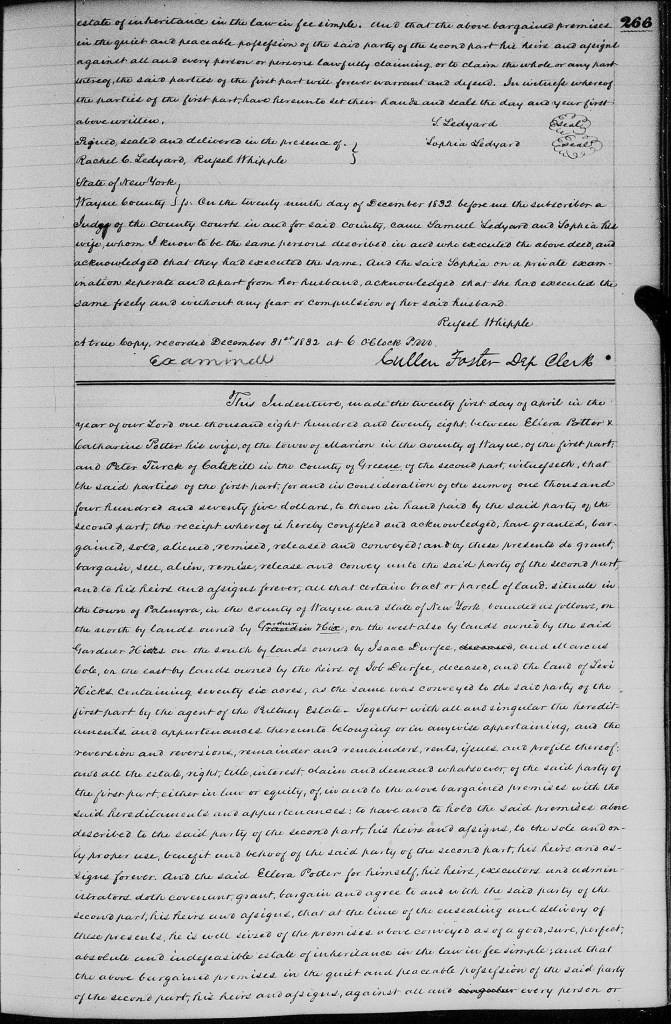 266
estate of inheritance in the law in fee simple. And that the above bargained premises
in the quiet and peaceable possession of the said party of the second part his heirs and assigns
against all and every person or persons lawfully claiming or to claim the whole or any part
thereof, the said parties of the first part will forever warrant and defend. In witness whereof
the parties of the first part, have hereunto set their hands and seals the day and year first
above written. S. Ledyard (Seal)
Signed, sealed and delivered in the presence of } Sophia Ledyard (Seal)
Rachel C. Ledyard, Russel Whipple
State of New York }
Wayne County } ss. On the twenty ninth day of December 1832 before me the subscriber a
Judge of the county courts in and for said county, came Samuel Ledyard and Sophia his
wife, whom I know to be the same persons described in and who executed the above deed, and
acknowledged that they had executed the same. And the said Sophia on a private exam-
ination seperate and apart from her husband, acknowledged that she had executed the
same freely and without any fear or compulsion of her said husband.
Russel Whipple
A true Copy, recorded December 31st 1832 at 6 O'Clock P.M.
Examined Cullen Foster Dep Clerk
This Indenture, made the twenty first day of april in the
year of our Lord one thousand eight hundred and twenty eight, between Ellera Potter &
Catharine Potter his wife, of the town of Marion in the county of Wayne, of the first part,
and Peter Turck of Catskill in the county of Greene, of the second part, witnesseth, that
the said parties of the first part, for and in consideration of the sum of one thousand
four hundred and seventy five dollars, to them in hand paid by the said party of the
second part, the receipt whereof is hereby confessed and acknowledged, have granted, bar-
gained, sold, aliened, remised, released and conveyed; and by these presents do grant,
bargain, sell, alien, remise, release and convey unto the said party of the second part,
and to his heirs and assigns forever, all that certain tract or parcel of land. situate in
the town of Palmyra, in the county of Wayne and state of New York bounded as follows, on
the north by lands owned by Gardner Hix, on the west also by lands owned by the said
Gardner Hicks on the south by lands owned by Isaac Durfee, deceased, and Marcus
Cole, on the east by lands owned by the heirs of Job Durfee, deceased, and the land of Levi
Hicks containing seventy six acres, as the same was conveyed to the said party of the
first part by the agent of the Pultney Estate - Together with all and singular the heredit-
aments and appurtenances thereunto belonging or in anywise appertaining, and the
reversion and reversions, remainder and remainders, rents, issues and profits thereof:
and all the estate, right, title, interest, claim and demand whatsoever, of the said party of
the first part, either in law or equity, of, in and to the above bargained premises with the
said hereditaments and appurtenances: to have and to hold the said premises above
described to the said party of the second part, his heirs and assigns, to the sole and on-
ly proper use, benefit and behoof of the said party of the second part, his heirs and as-
signs forever. And the said Ellera Potter for himself, his heirs, executors and admin-
istrators doth covenant, grant, bargain and agree to and with the said party of the
second part, his heirs and assigns, that at the time of the ensealing and delivery of
these presents, he is well seized of the premises above conveyed as of a good, sure, perfect,
absolute and indefeasible estate of inheritance in the law in fee simple; and that
the above bargained premises in the quiet and peaceable possession of the said party
of the second part, his heirs and assigns, against all and singular every person or